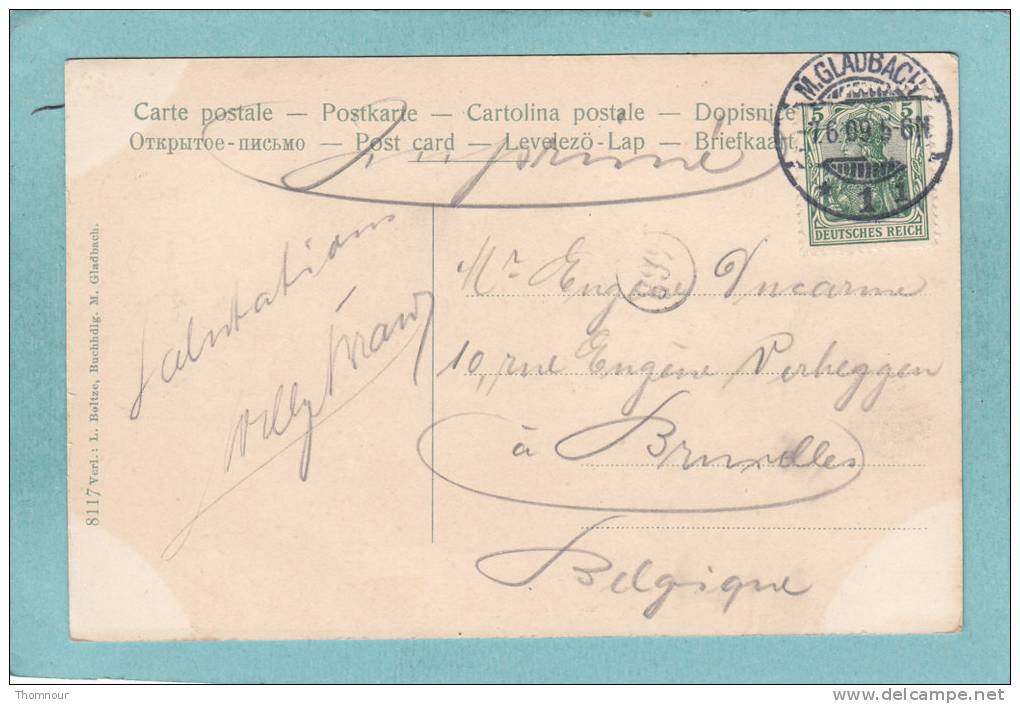 Carte postale — Postkarte — Cartolina postale — Dopisnice
Открытое-письмо — Post card — Levelező-Lap — Briefkaart
Imprimé
M.GLADBACH
7.6.09.5-6N
* 1 1
5 5
DEUTSCHES REICH
Salutations
Willy
Mr Eugène Ducarme
10, rue Eugène Verheggen
à Bruxelles
Belgique
8117 Verl.: L. Boltze, Buchhdlg. M. Gladbach.
Thomnour
www.delcampe.net